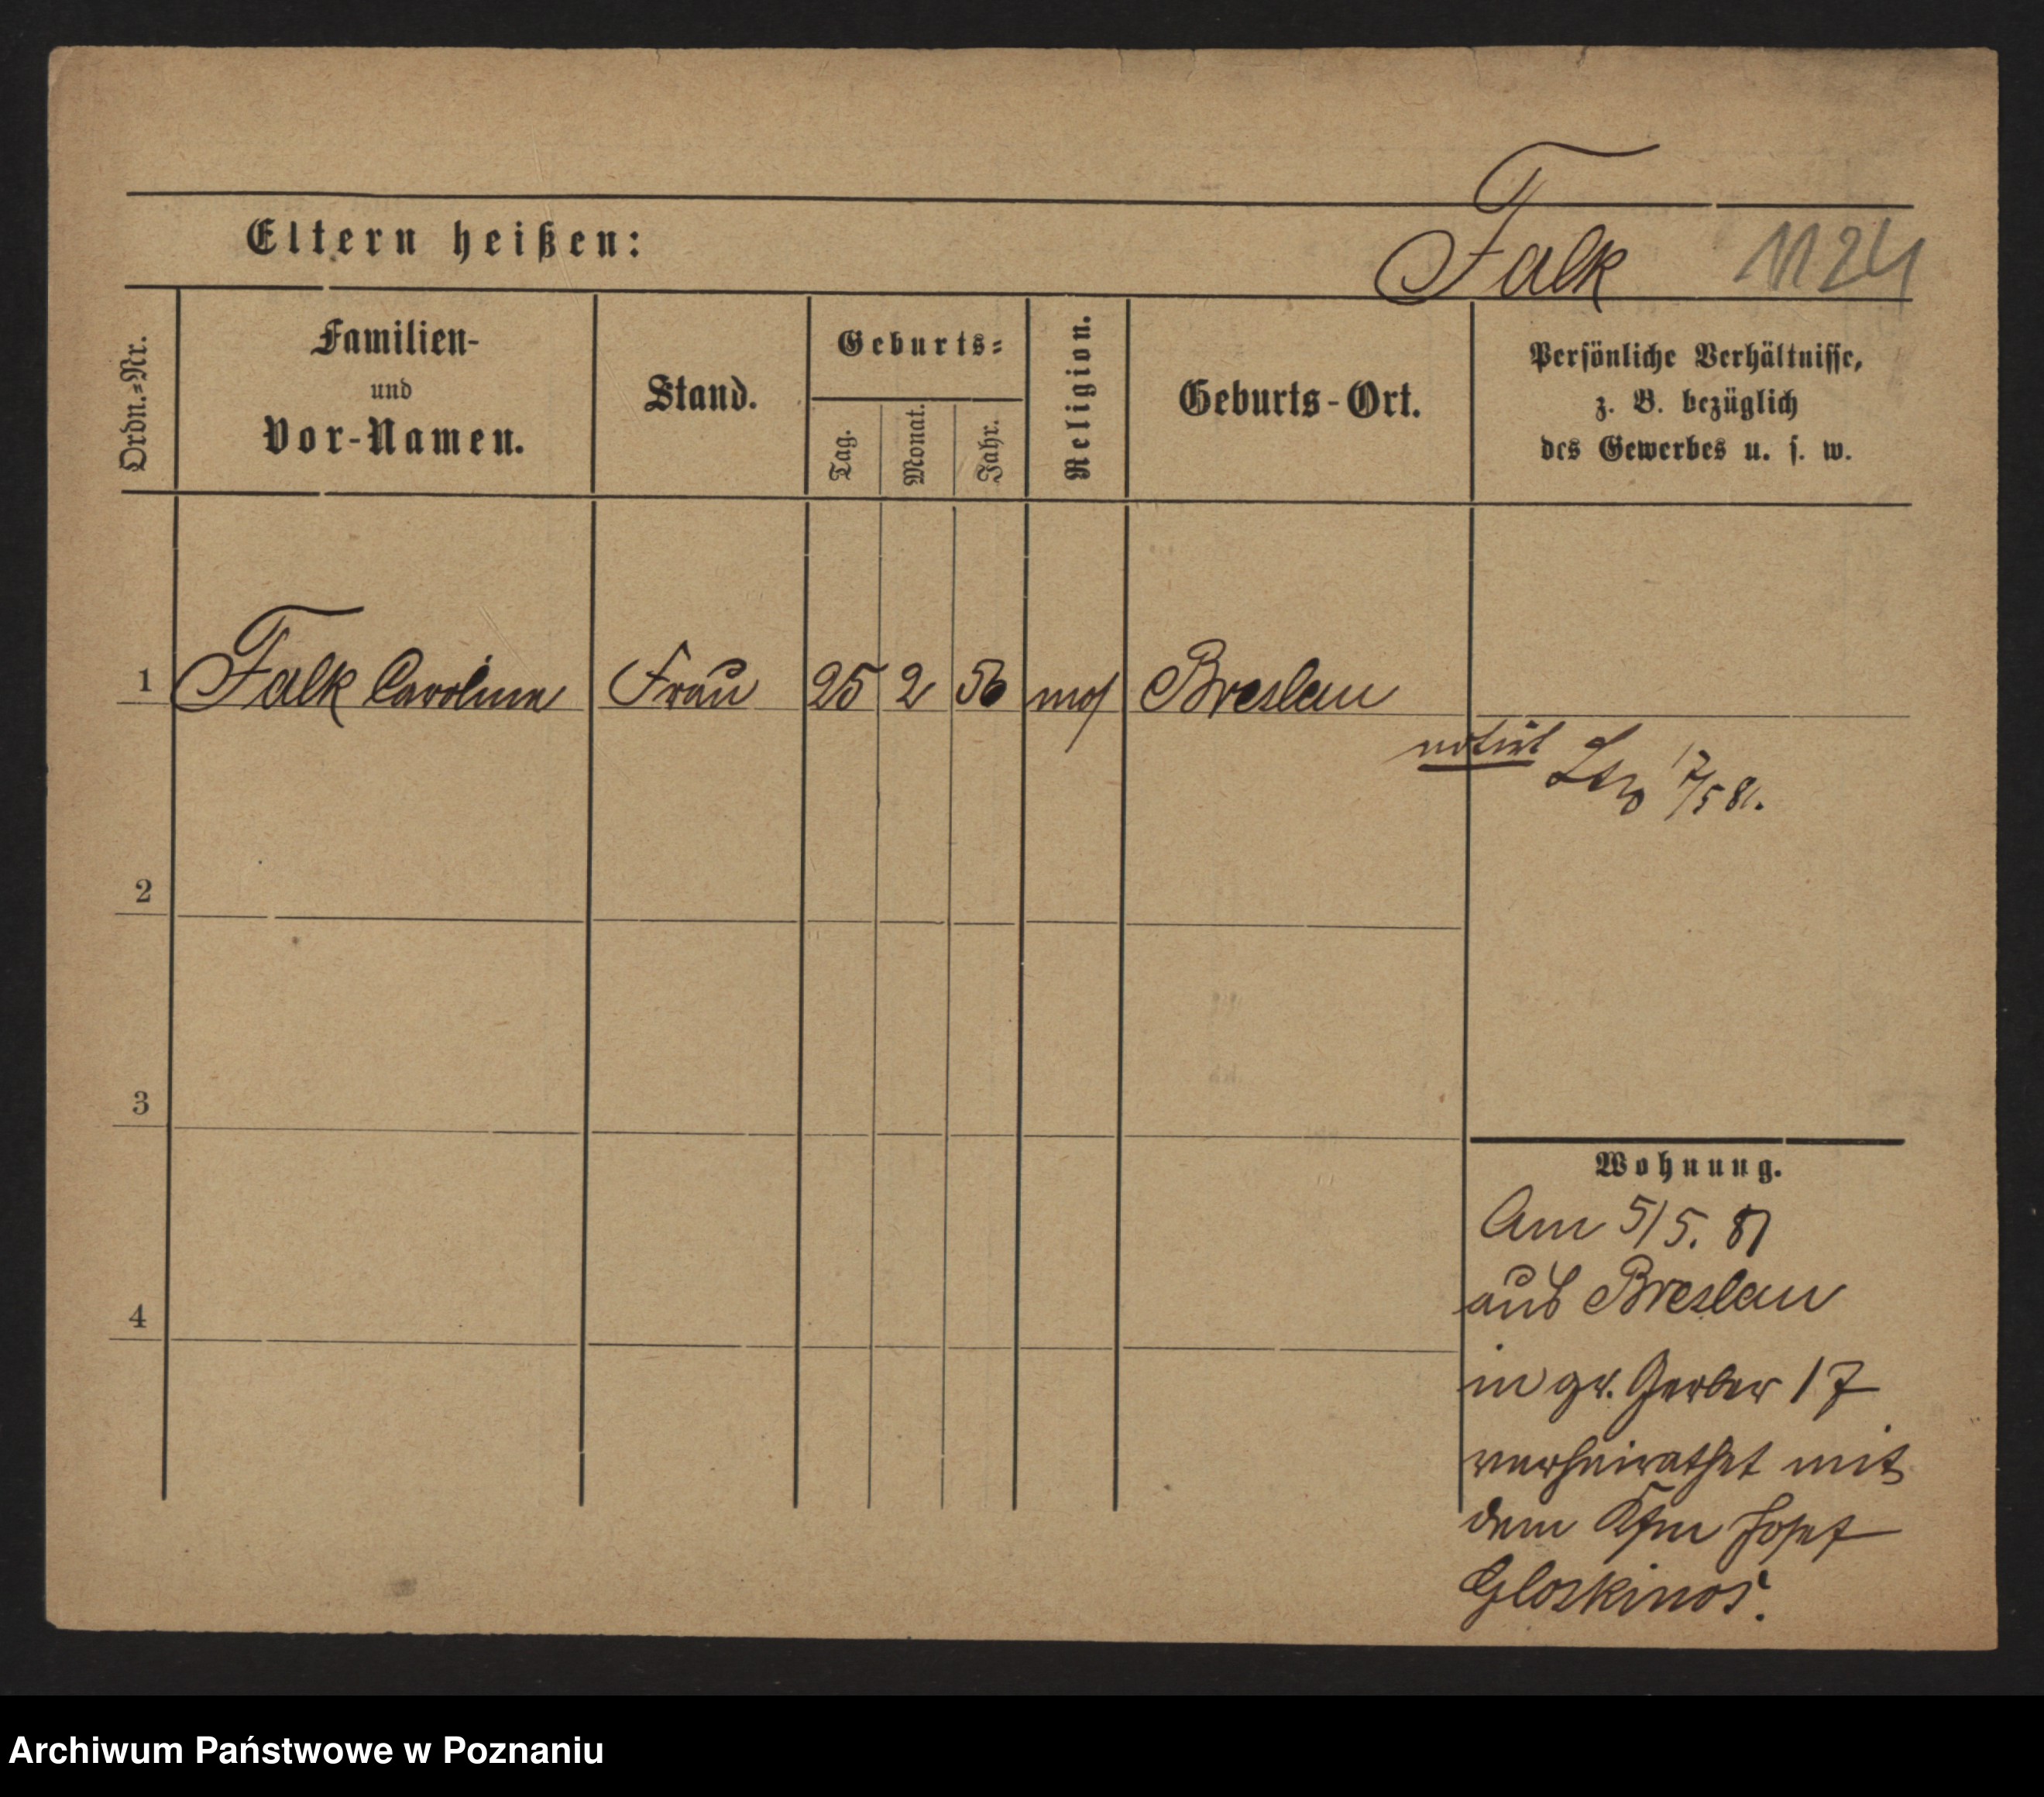 Eltern heißen:
Falk 1124
Ordn.=Nr.
Familien-
und
Vor-Namen.
Stand.
Geburts=
Tag.
Monat.
Jahr.
Religion.
Geburts-Ort.
Persönliche Verhältnisse,
z. B. bezüglich
des Gewerbes u. s. w.
1 Falk Caroline Frau 25 2 56 mos Breslau
notirt
17/5 81.
2
3
4
Wohnung.
Am 5/5. 81
aus Breslau
in gr. Gerber 17
verheirathet mit
dem Kfm Josef
Archiwum Państwowe w Poznaniu